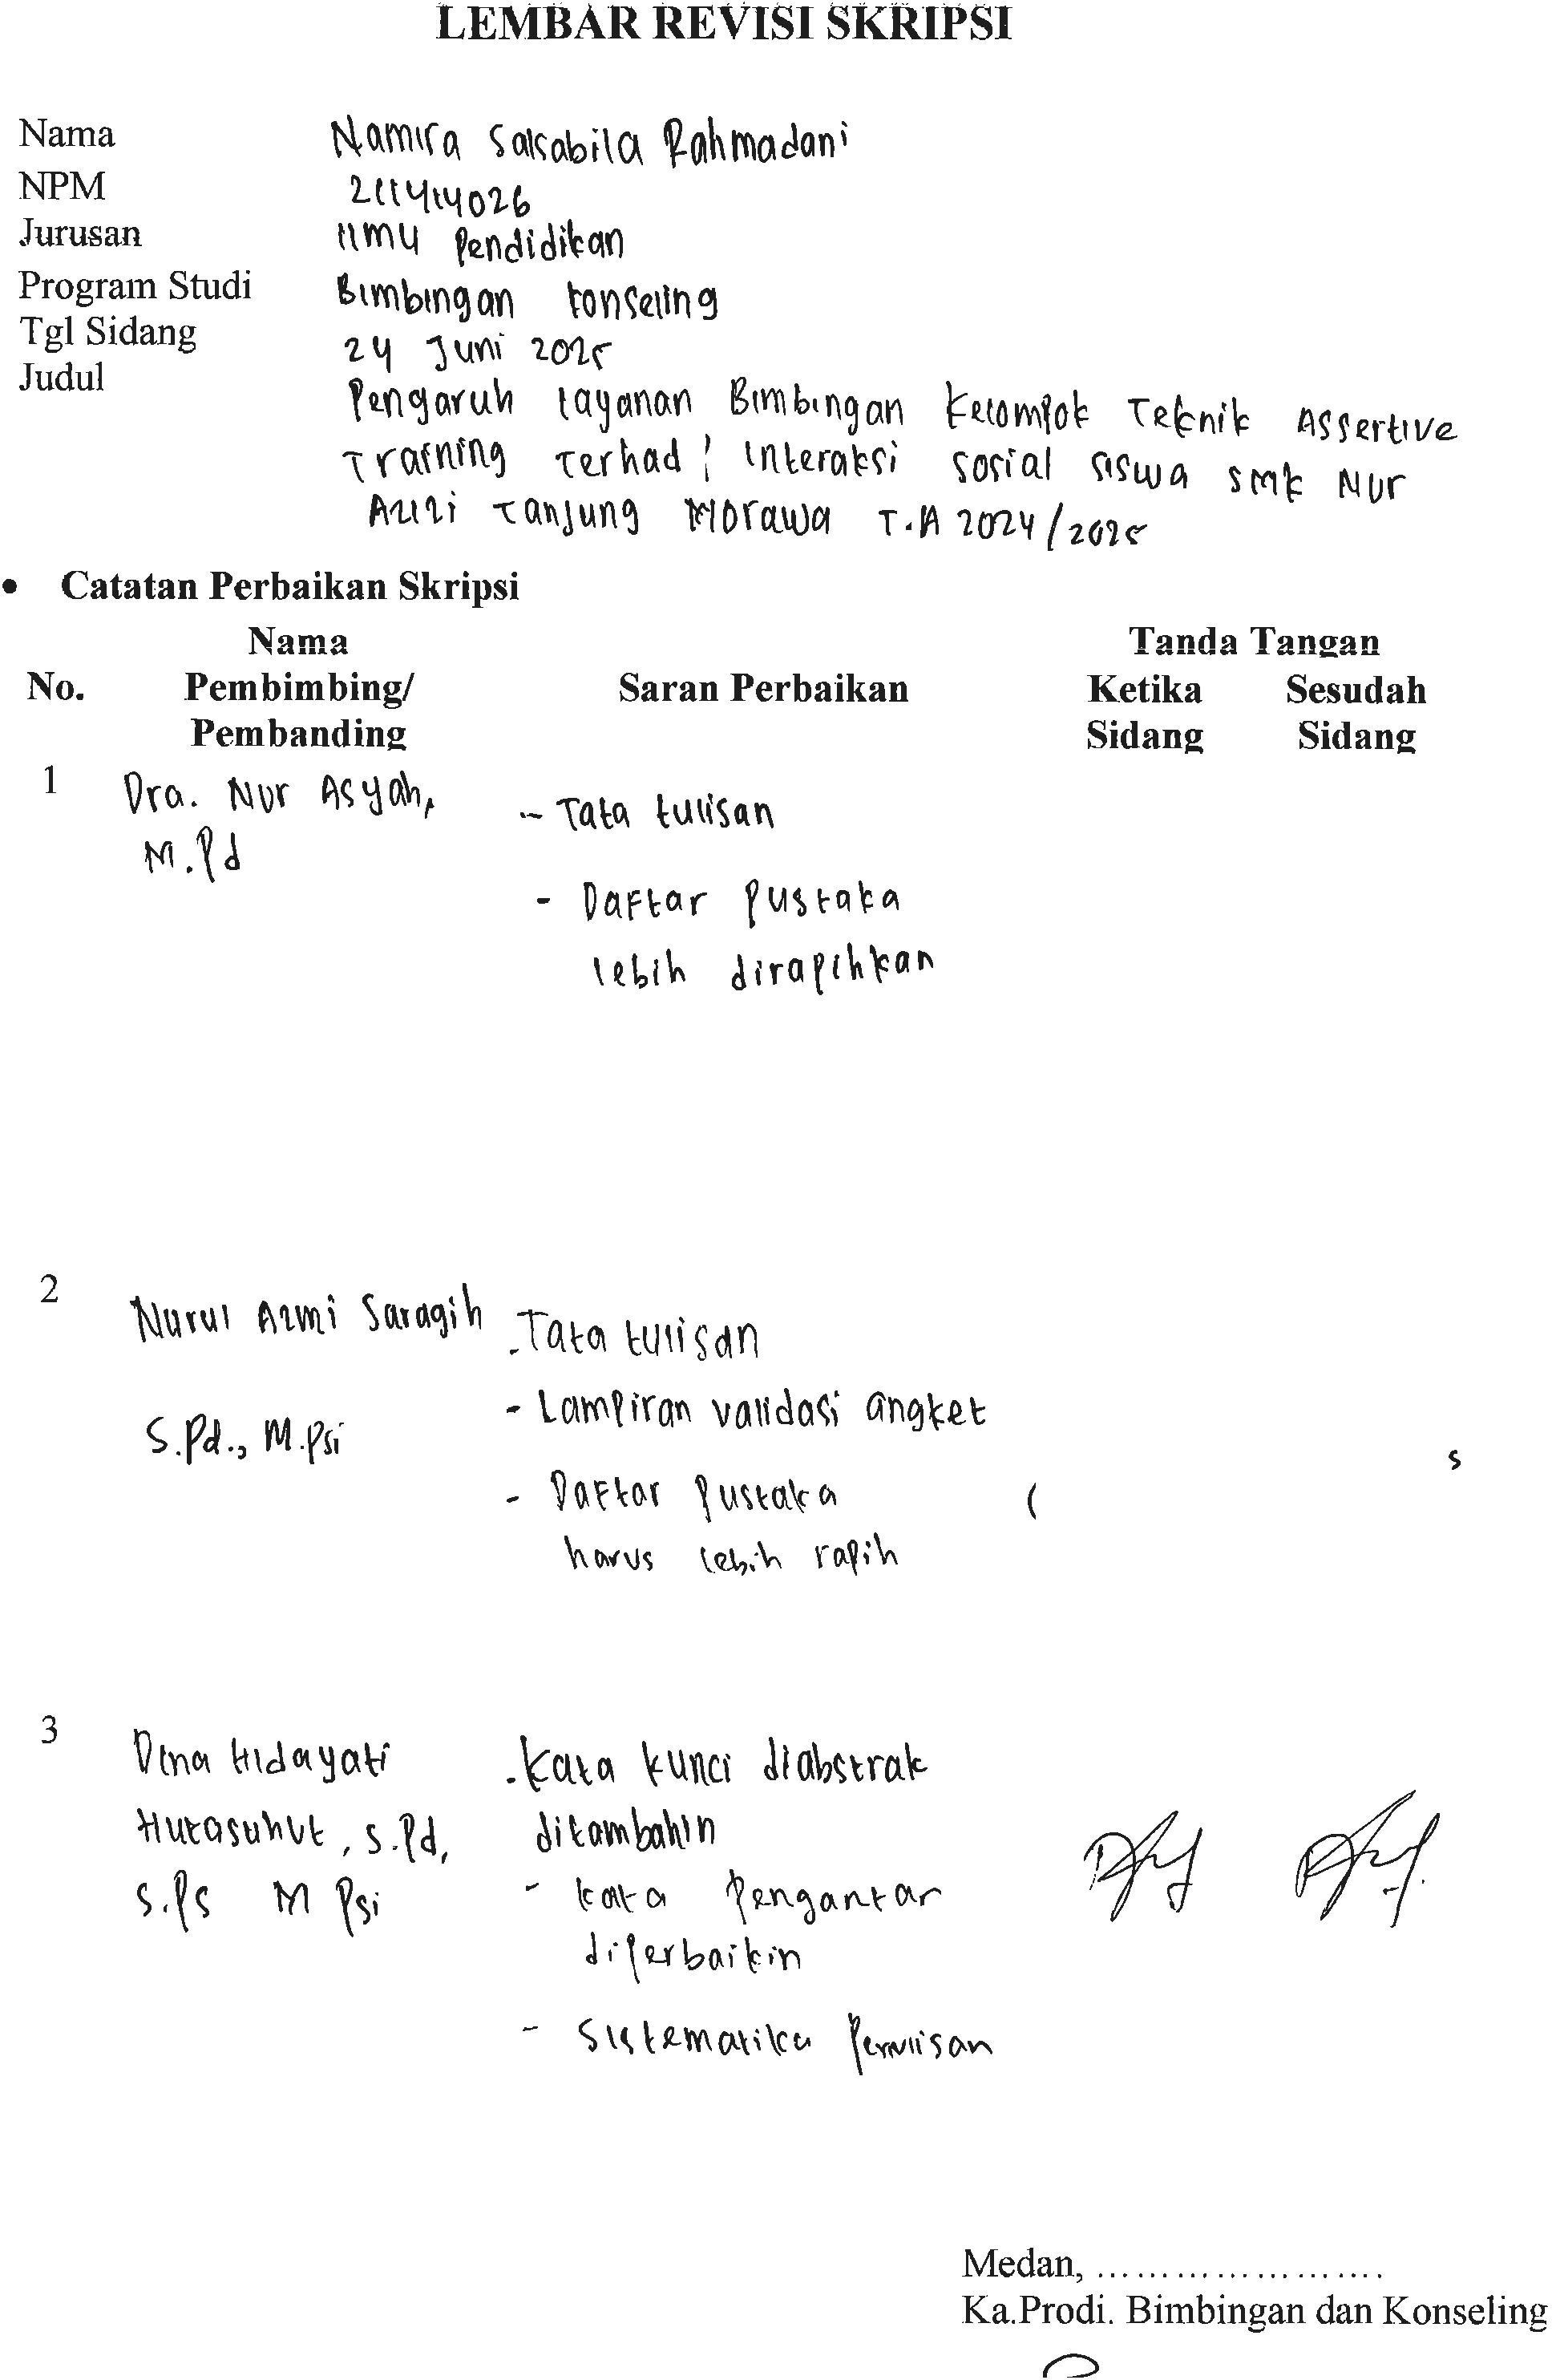 LEMBAR REVISI SKRIPSI
Nama Namira Salsabila Rahmadani
NPM 211414026
Jurusan Ilmu Pendidikan
Program Studi Bimbingan konseling
Tgl Sidang 24 Juni 2025
Judul Pengaruh Layanan Bimbingan Kelompok Teknik Assertive
Training Terhad Interaksi Sosial Siswa SMK Nur
Azizi Tanjung Morawa T.A 2024/2025
• Catatan Perbaikan Skripsi
Nama Tanda Tangan
No. Pembimbing/ Saran Perbaikan Ketika Sesudah
Pembanding Sidang Sidang
1 Dra. Nur Asyah, - Tata tulisan
M.Pd
- Daftar Pustaka
lebih dirapihkan
2 Nurul Azmi Saragih - Tata tulisan
S.Pd., M.Psi - Lampiran validasi angket
- Daftar Pustaka
harus lebih rapih
3 Dina Hidayati - Kata kunci diabstrak
Hutasuhut, S.Pd, ditambahin
S.Ps M Psi - kata Pengantar
diperbaikin
- Sistematika Penulisan
Medan, .....................
Ka.Prodi. Bimbingan dan Konseling